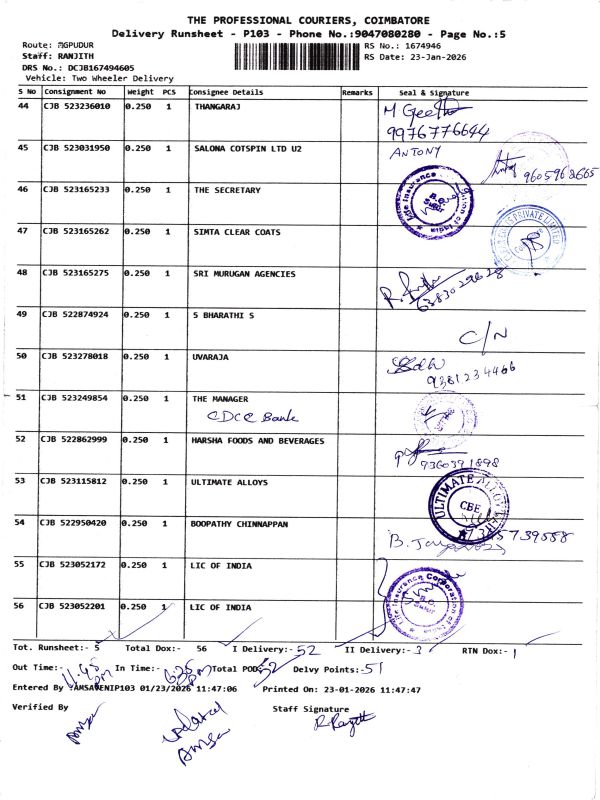 THE PROFESSIONAL COURIERS, COIMBATORE
Delivery Runsheet - P103 - Phone No.:9047080280 - Page No.:5
Route: MGPUDUR
RS No.: 1674946
Staff: RANJITH
RS Date: 23-Jan-2026
DRS No.: DCJB167494605
Vehicle: Two Wheeler Delivery
S No Consignment No Weight PCS Consignee Details Remarks Seal & Signature
44 CJB 523236010 0.250 1 THANGARAJ M Geetha
9976776644
45 CJB 523031950 0.250 1 SALONA COTSPIN LTD U2 ANTONY
9605968665
46 CJB 523165233 0.250 1 THE SECRETARY
Life Insurance Corporation of India
47 CJB 523165262 0.250 1 SIMTA CLEAR COATS
PRIVATE LIMITED
48 CJB 523165275 0.250 1 SRI MURUGAN AGENCIES
49 CJB 522874924 0.250 1 S BHARATHI S
C/N
50 CJB 523278018 0.250 1 UVARAJA
9381234466
51 CJB 523249854 0.250 1 THE MANAGER
CDCC Bank
52 CJB 522862999 0.250 1 HARSHA FOODS AND BEVERAGES
9360391898
53 CJB 523115812 0.250 1 ULTIMATE ALLOYS
ULTIMATE ALLOY
CBE
54 CJB 522950420 0.250 1 BOOPATHY CHINNAPPAN
55 CJB 523052172 0.250 1 LIC OF INDIA
Life Insurance Corporation of India
56 CJB 523052201 0.250 1 LIC OF INDIA
Tot. Runsheet:- 5 Total Dox:- 56 I Delivery:- 52 II Delivery:- 3 RTN Dox:- 1
Out Time:- 11.45 PM In Time:- 6.35 PM Total POD:- 52 Delvy Points:- 51
Entered By :AMSAVENIP103 01/23/2026 11:47:06 Printed On: 23-01-2026 11:47:47
Verified By
Staff Signature